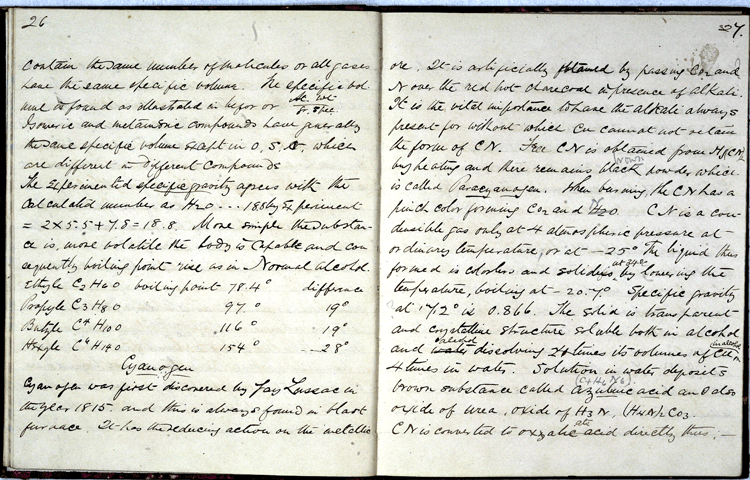 26
contain the same number of molecules or all gases
have the same specific volume. The specific vol
ume to found as illustrated in before or At. wt
Isomeric and metameric compounds have generally
the same specific volume except in O, S, &c, which
are different in different compounds
The experimented specific gravity agrees with the
calculated number as H2O --- 18.8 by Experiment
= 2 x 5.5 + 7.8 = 18.8. More simple the substan-
ce is, more volatile the body is capable and con
sequently boiling point rise as in Normal alcohol.
Ethyle C2H6O boiling point 78.4° diffrance
Propyle C3H8O 97.° 19°
Butyle C4H10O 116° 19°
Hexyle C6H14O 154° 28°
Cyanogen
Cyanogen was first discovered by Gay Lussac in
the year 1815. and this is always found in blast
furnace. It has the reducing action on the metallic
27.
ore. It is artificially obtained by passing Co2 and
N over the red hot charcoal in presence of alkali.
It is the vital importance to have the alkali always
present for without which Cn cannot not retain
the form of CN. Free CN is obtained from Hg(CN)2
by heating and there remains black powder which
brown
is called Paracyanogen. When burning, the CN has a
pinch color forming Co2 and H2O. CN is a con-
densible gas only at 4 atmospheric pressure at
ordinary temperature, or at -25° The liquid thus
formed is colorless and solidess, by lowering the
at -34°
temperature, boiling at -20.7° Specific gravity
at 17.2° is 0.866. The solid is transparent
and crystelline structure soluble both in alcohol
and water disolving 24 times its volumes of CN
in alcohol
4 times in water. Solution in water deposits
brown substance called azulmic acid and also
oxide of urea, oxide of H3N, (H4N)2CO3
CN is converted to oxyalic acid directly thus; —
ate